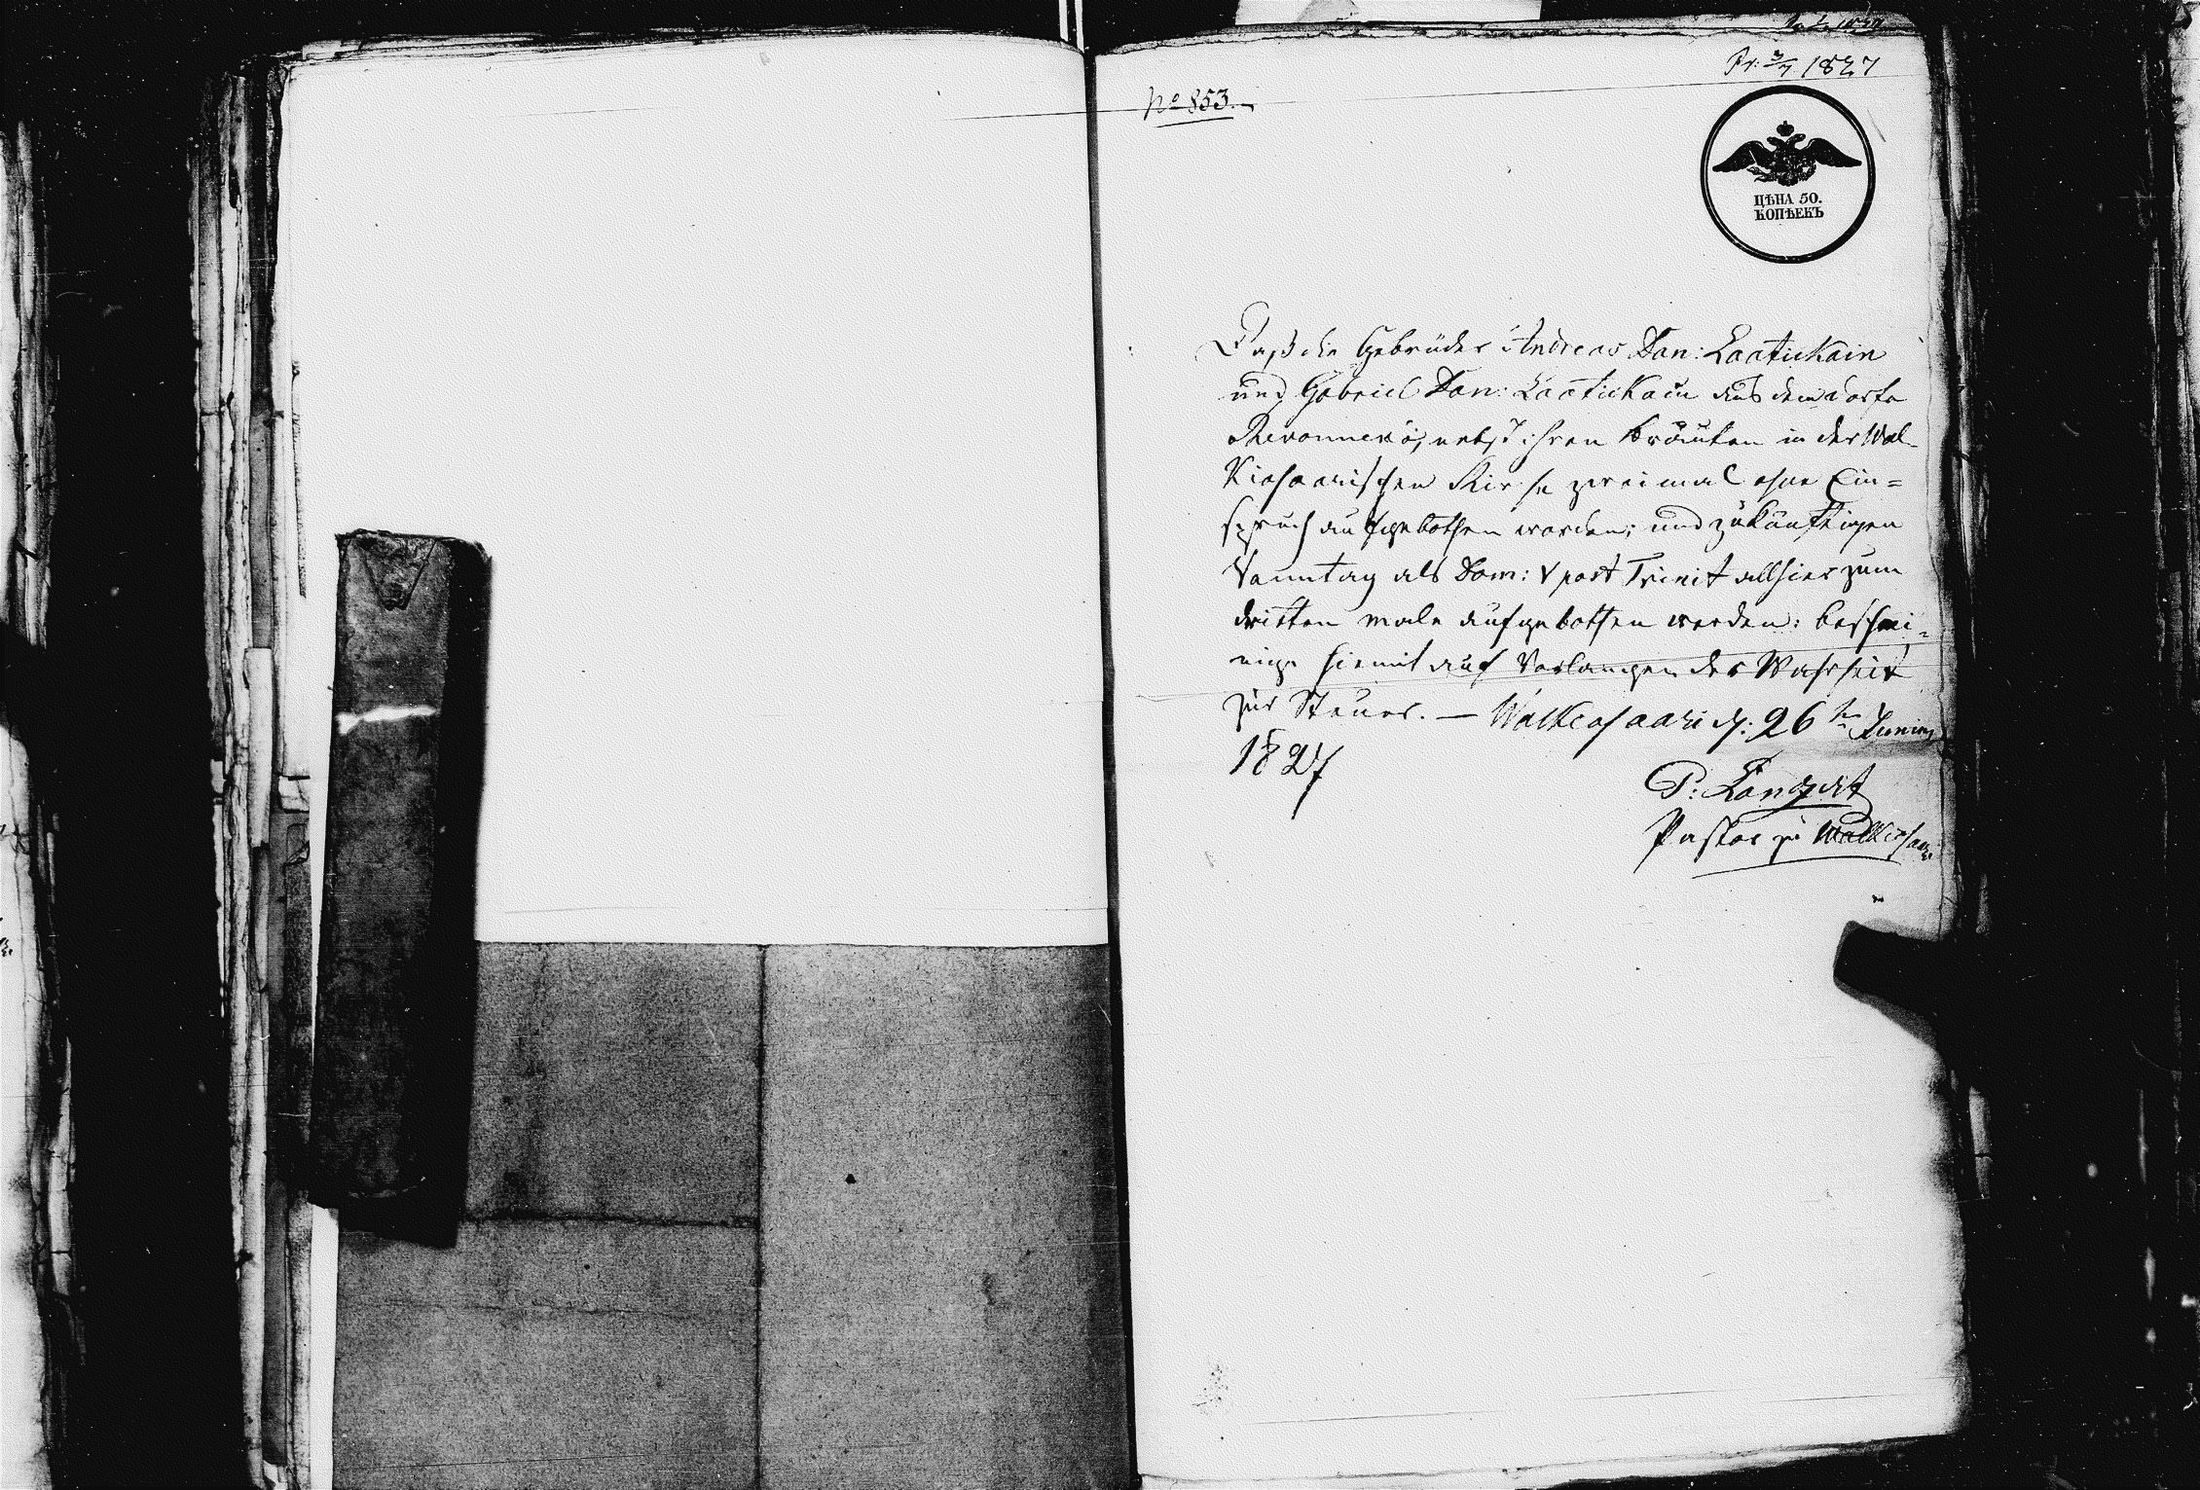 Pr: 3/7 1827
No 853.
ЦѢНА 50.
КОПѢЕКЪ
Daß die Gebrüder Andreas Dan: Laatikain
und Gabriel Dan: Laatikain aus dem Dorfe
nebst ihren Bräuten in der Wal-
kiasaarischen Kirche zweimal ohne Ein=
spruch aufgebothen worden; und zukünftigen
Sonntag als Dom: V post Trinit allhier zum
dritten male aufgebothen werden: beschei-
nige hiemit auf Verlangen der Wahrheit
zur Steuer. — Walkeasaari d: 26 ten Junius
1827
P:
Pastor zu Walkeasaari